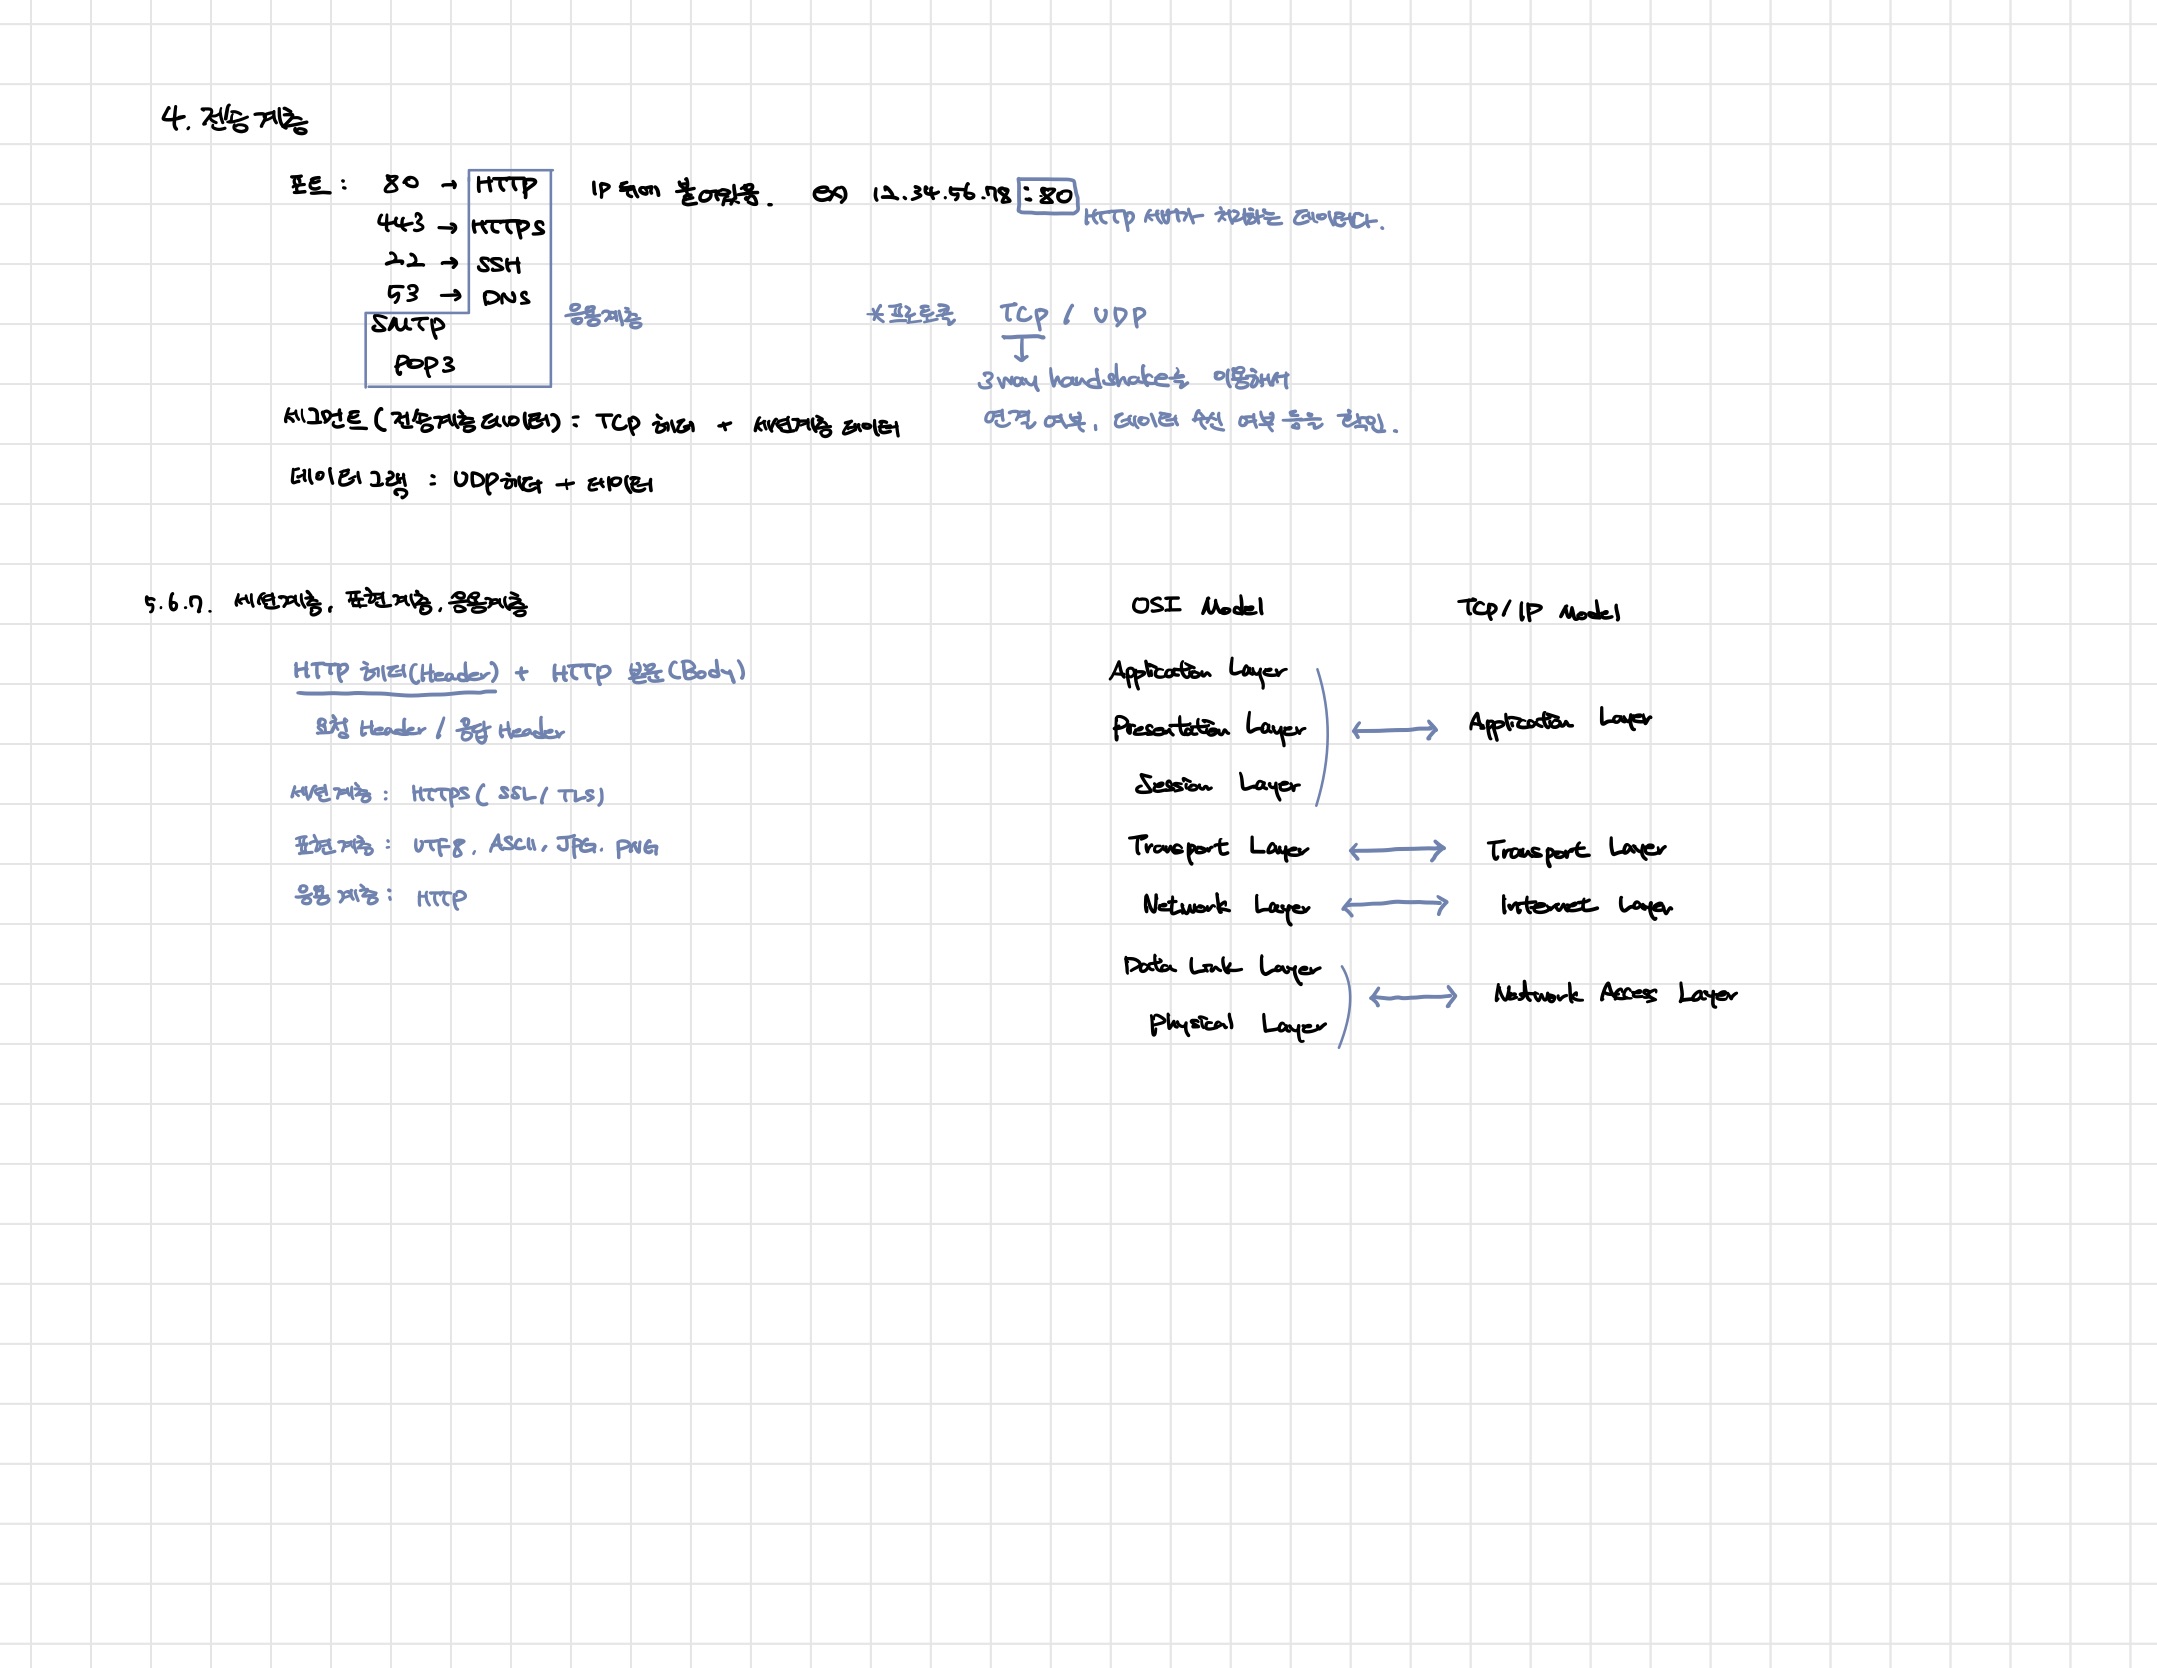 4. 전송계층
포트 : 80 → HTTP IP 뒤에 붙어있음. ex) 12.34.56.78 :80
HTTP 서버가 처리하는 데이터다.
443 → HTTPS
22 → SSH
53 → DNS
SMTP
POP3
응용계층
*프로토콜 TCP / UDP
↓
3way handshake를 이용해서
연결 여부, 데이터 수신 여부 등을 확인.
세그먼트 (전송계층 데이터) : TCP 헤더 + 세션계층 데이터
데이터그램 : UDP 헤더 + 데이터
5.6.7. 세션계층, 표현계층, 응용계층
HTTP 헤더(Header) + HTTP 본문(Body)
요청 Header / 응답 Header
세션계층 : HTTPS ( SSL / TLS)
표현계층 : UTF8, ASCII, JPG, PNG
응용계층 : HTTP
OSI Model TCP/IP Model
Application Layer
Presentation Layer ↔ Application Layer
Session Layer
Transport Layer ↔ Transport Layer
Network Layer ↔ Internet Layer
Data Link Layer
Physical Layer ↔ Network Access Layer